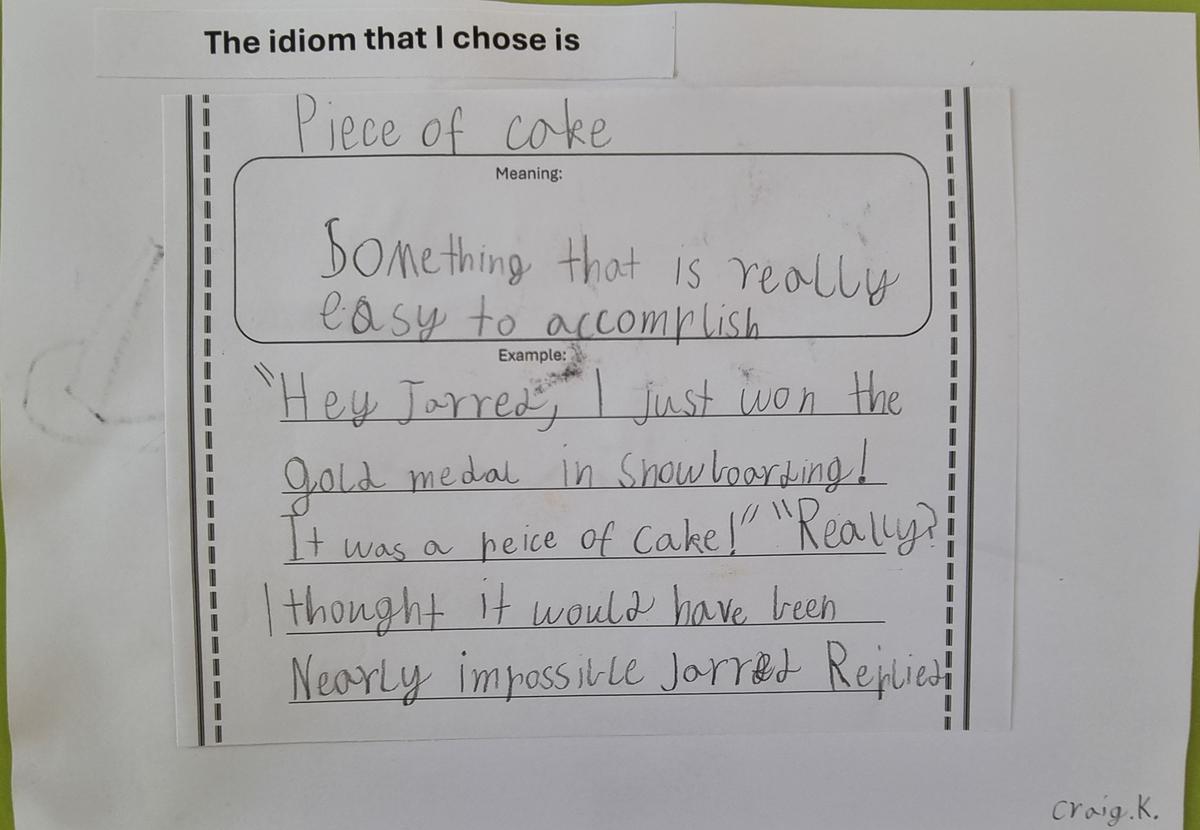 The idiom that I chose is
Piece of cake
Meaning:
Something that is really
easy to accomplish
Example:
"Hey Jarred, I just won the
gold medal in Snowboarding!
It was a peice of cake!" "Really?
I thought it would have been
Nearly impossible Jarred Replied
Craig.K.